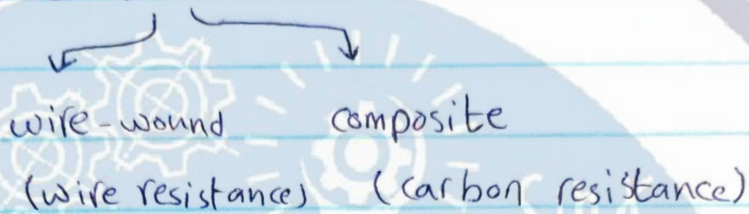 wire-wound composite
(wire resistance) (carbon resistance)